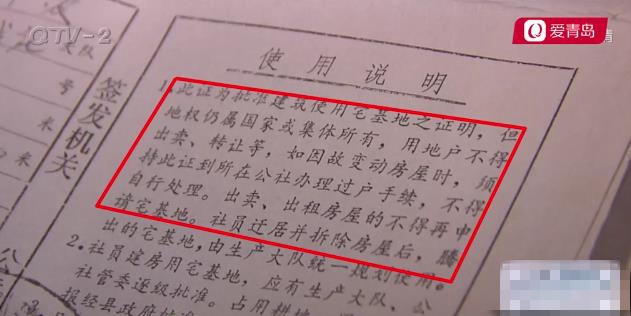 QTV-2
爱青岛
大队
号
米
米
签发机关
使用说明
1.此证为批准建筑使用宅基地之证明,但
地权仍属国家或集体所有,用地户不得
出卖、转让等,如因故变动房屋时,须
持此证到所在公社办理过户手续,不得
自行处理。出卖、出租房屋的不得再申
请宅基地。社员迁居并拆除房屋后,腾
出的宅基地,由生产大队统一规划使用。
2.社员建房用宅基地,应有生产大队、公
社管委逐级批准。占用耕地
报经县政府批准